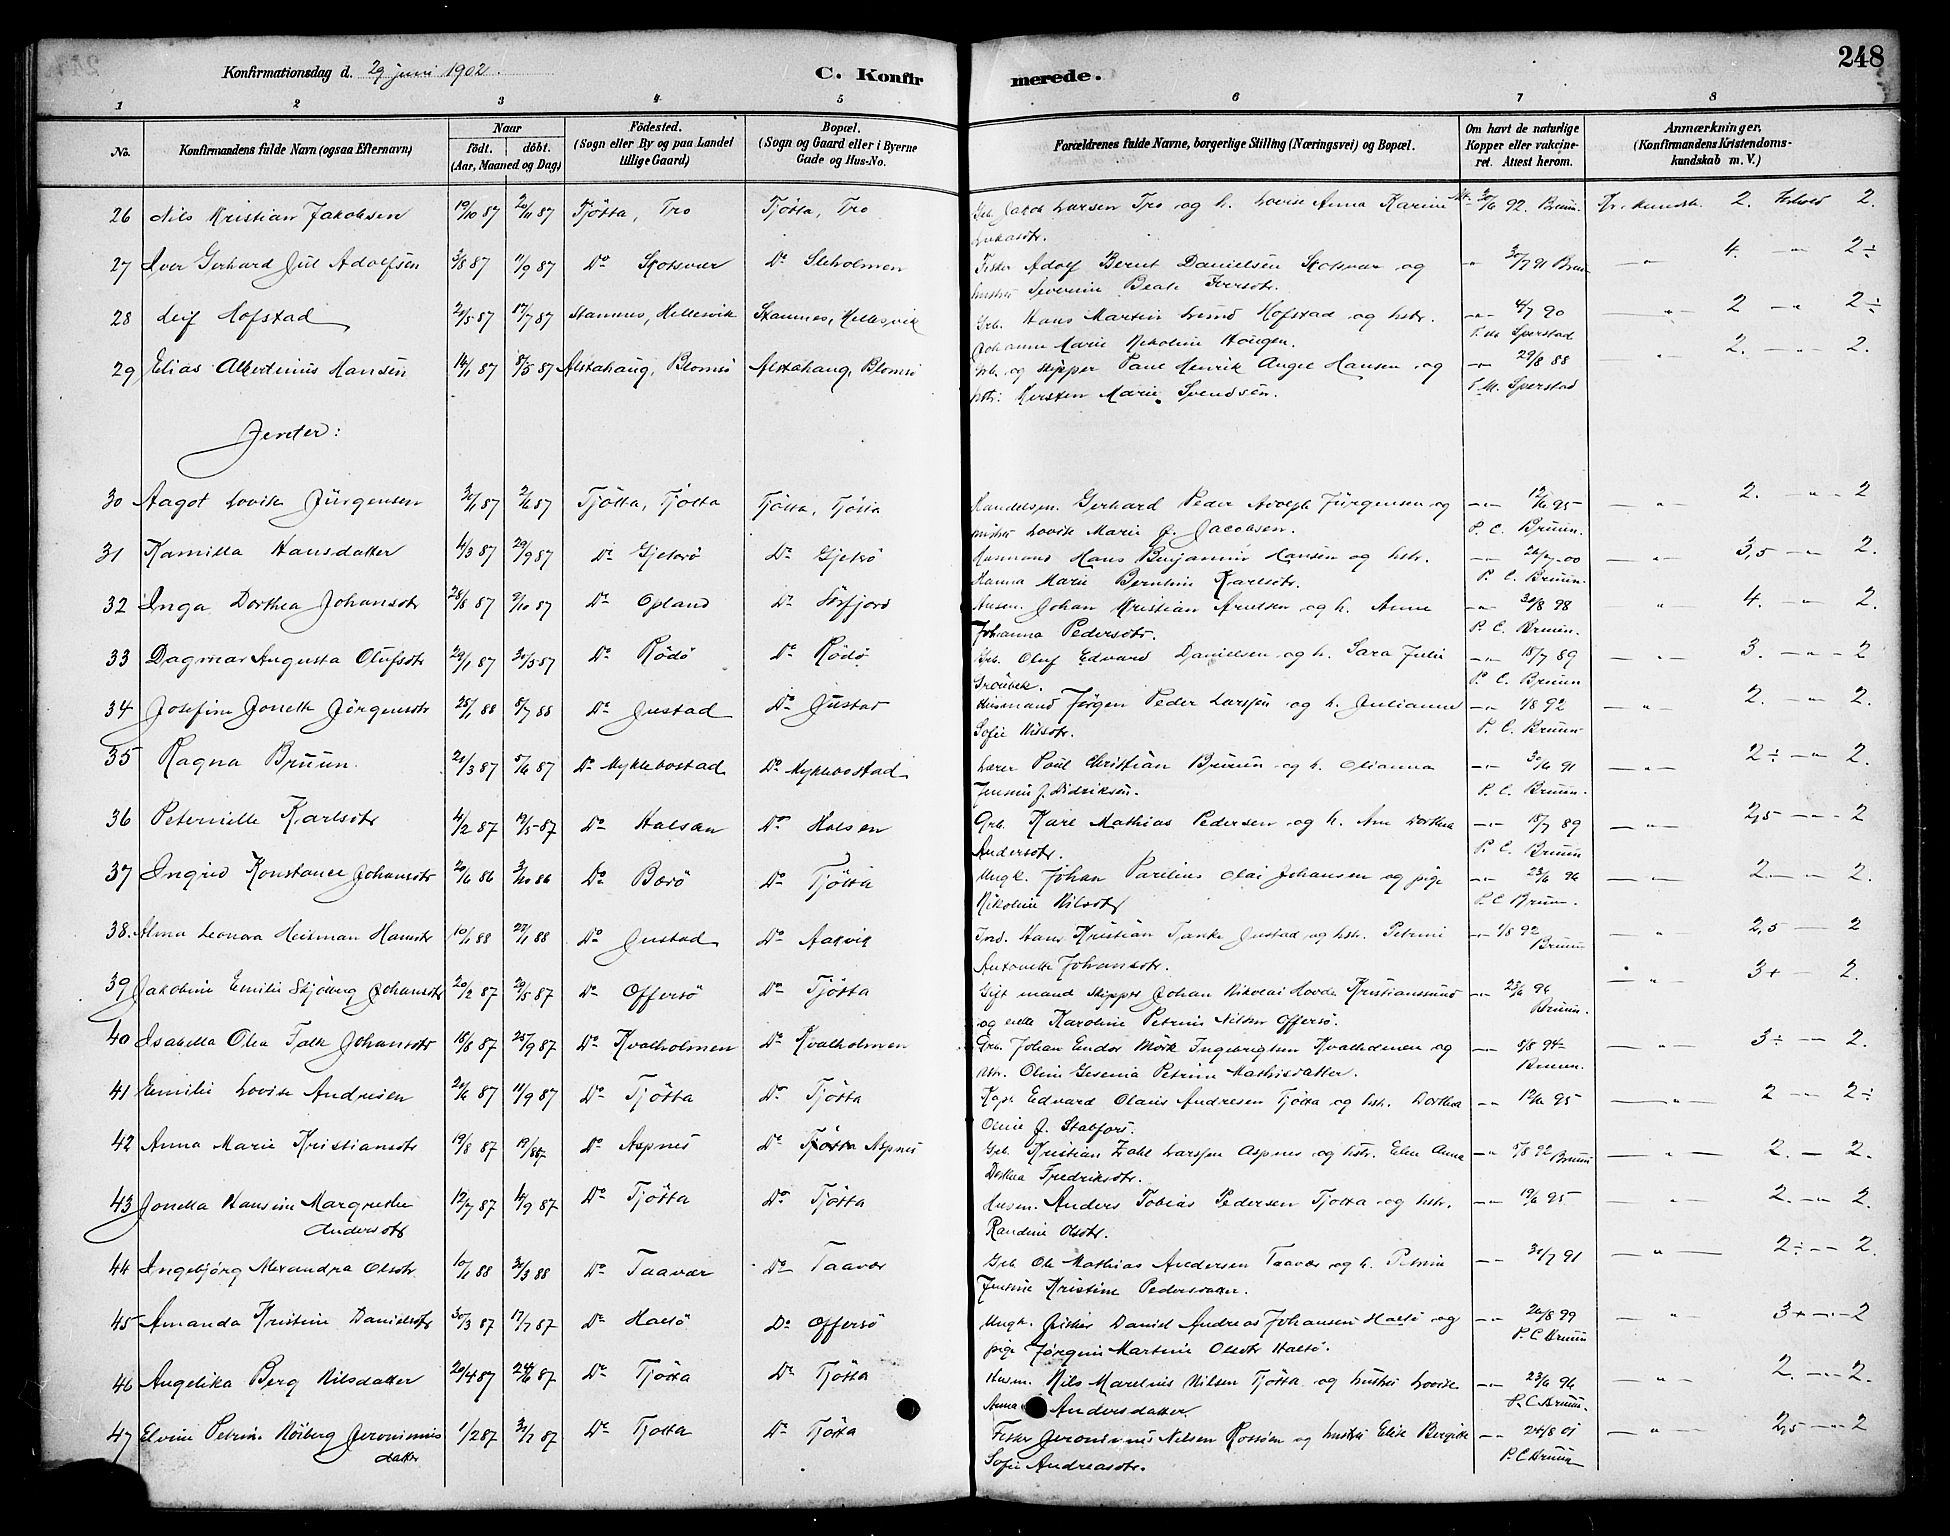 248
Konfirmationsdag d. 29 juni 1902.
C. Konfirmerede.
1 2 3 4 5 6 7 8
No.
Konfirmandens fulde Navn (ogsaa Efternavn)
Naar
født. døbt.
(Aar, Maaned og Dag)
Fødested.
(Sogn eller By og paa Landet
tillige Gaard)
Bopæl.
(Sogn og Gaard eller i Byerne
Gade og Hus-No.
Forældrenes fulde Navne, borgerlige Stilling (Næringsvei) og Bopæl.
Om havt de naturlige
Kopper eller vakcine-
ret. Attest herom.
Anmærkninger.
(Konfirmandens Kristendoms-
kundskab m. V.)
26 Nils Kristian Jakobsen 19/10 87 20/11 87 Tjøtta, Tro Tjøtta, Tro Grb. Jakob Larsen Tro og h. Lovise Anna Karine 92. Bruun. Kr. kundsk. 2. Forhold 2.
Lukasdtr.
27 Iver Gerhard Juul Adolfsen 3/8 87 11/9 87 Do Skotsvær Do Sleholmen Fisker Adolf Bernt Danielsen Skotsvær og 30/7 91 Bruun — „ — 4. — „ — 2÷
hustru Severine Beate Iversdtr.
28 Leif Hofstad 2/5 87 17/7 87 Stamnes, Hellesvik Stamnes, Hellesvik Grb. Hans Martin Lund Hofstad og hstr. —„— 4/7 90 — „ — 2 — „ — 2÷
Johanne Marie Nikoline Hongen. P. M. Sperstad
29 Elias Albertinius Hansen 14/1 87 8/5 87 Alstahaug, Blomsø Alstahaug, Blomsø Grb. og skipper Paul Henrik Angel Hansen og —„— 29/8 88 — „ — 2. — „ — 2.
hstr: Kirsten Marie Svendsen. P. M. Sperstad
Jenter:
30 Aagot Lovise Jürgensen 87 87 Tjøtta, Tjøtta Tjøtta, Tjøtta Handelsm. Gerhard Peder Adolph Jürgensen og —„— 12/6 95 — „ — 2. — „ — 2
hustru Lovise Marie f. Jacobsen. P. C. Bruun.
31 Kamilla Hansdatter 4/3 87 29/9 87 Do Gjeterø Do Gjeterø Husmand Hans Benjamin Hansen og hstr. —„— 00 — „ — 3,5 — „ — 2.
Hanna Marie Berntine Karlsdtr. P. C. Bruun.
32 Inga Dorthea Johansdtr 28/8 87 9/10 87 Do Opland Do Sørfjord Husm. Johan Kristian Arntsen og h. Anne —„— 30/8 98 — „ — 4. — „ — 2.
Johanna Pedersdtr. P. C. Bruun.
33 Dagmar Augusta Olufsdtr 29/1 87 30/5 87 Do Rødø Do Rødø Grb. Oluf Edvard Danielsen og h. Sara Julie —„— 18/7 89 — „ — 3. — „ — 2
Grønbek. P. C. Bruun
34 Josefine Jonette Jørgensdtr 25/1 88 8/7 88 Do Justad Do Justad Husmand Jørgen Peder Larsen og h. Julianne —„— 1/8 92 — „ — 2. — „ — 2.
Sofie Nilsdtr. P. C. Bruun
35 Ragna Bruun. 20/3 87 5/6 87 Do Myklebostad Do Myklebostad Lærer Poul Christian Bruun og h. Olianna —„— 30/6 91 — „ — 2÷ — „ — 2.
Jensen f. Didriksen. P. C. Bruun.
36 Peternelle Karlsdtr 4/2 87 19/5 87 Do Halsan Do Halsen Grb. Karl Mathias Pedersen og h. Ane Dorthea —„— 18/7 89 — „ — 2,5 — „ — 2
Andersdtr. P. C. Bruun
37 Ingrid Konstance Johansdtr 20/6 86 3/10 86 Do Bærø Do Tjøtta Ungk. Johan Parelius Olai Johansen og pige —„— 23/6 96 — „ — 2. — „ — 2.
Nikoline Nilsdtr P. C. Bruun.
38. Alma Leonora Heitman Hansdtr 10/1 88 88 Do Justad Do Aakvik Ind. Hans Kristian Tanke Justad og hstr. Petrine —„— 1/8 92 — „ — 2,5 — 2
Antonette Johansdtr. Bruun
39 Jakobine Emilie Skjølberg Johansdtr 20/2 87 29/5 87 Do Offersø Do Tjøtta Gift mand skipper Johan Nikolai Hovde Kristianssund —„— 23/6 96 — „ — 3+ — 2.
og enke Karoline Petrine Nilsen Offersø. Bruun.
40 Isabella Olea Falk Johansdtr 18/8 87 25/9 87 Do Kvalholmen Do Kvalholmen Grb. Johan Endor Mørk Ingebrigtsen Kvalholmen og —„— 8/8 94 — „ — 3÷ — 2.
hstr. Oline Gesenia Petrine Mathisdatter. Bruun.
41 Emilie Lovise Andresen 20/6 87 11/9 87 Do Tjøtta Do Tjøtta Kapt. Edvard Olaus Andresen Tjøtta og hstr. Dorthea —„— 12/6 95 — „ — 2 — 2÷
Oline f. Stabfors.
42 Anna Marie Kristiansdtr 19/8 87 19/8 87 Do Aspnes Do Aspnes Grb. Kristian Zahl Larsen Aspnes og hstr. Elen Anna —„— 5/8 92 Bruun — „ — 2. — 2.
Dorthea Fredriksdtr.
43 Jonetta Hansine Margrethe 12/7 87 4/9 87 Do Tjøtta Do Tjøtta Husm. Anders Tobias Pedersen Tjøtta og hstr. —„— 19/6 95 — „ — 2. — „ — 2
Andersdtr Randine Olsdtr.
44 Ingebjørg Alexandra Olsdtr. 10/1 88 30/3 88 Do Taavær Do Taavær Grb. Ole Mathias Andersen Taavær og h. Petrine —„— 30/7 91 — „ — 2÷ — 2.
Jensine Kristine Pedersdatter.
45 Amanda Kristine Danielsdtr 30/3 87 17/7 87 Do Halsø Do Offersø Ungk. fisker Daniel Andreas Johansen Halsø og —„— 26/8 99 — „ — 3+ — 2
pige Jørgine Martine Olsdtr Halsø. P. C. Bruun
46 Angelika Berg Nilsdatter 20/4 87 24/6 87 Do Tjøtta Do Tjøtta Husm. Nils Marelius Nilsen Tjøtta og hustru Lovise —„— 23/6 96 — „ — 2. — 2.
Anna Andersdatter. P. C. Bruun.
47 Elvine Petrine Høiberg Jeronimus 1/2 87 87 Do Tjøtta Do Tjøtta Fisker Jeronimus Nilsen Rossøen og hustru Elise Bergitte —„— 24/8 01 — „ — 2,5 — 2
datter Sofie Andreasdtr. P. C. Bruun